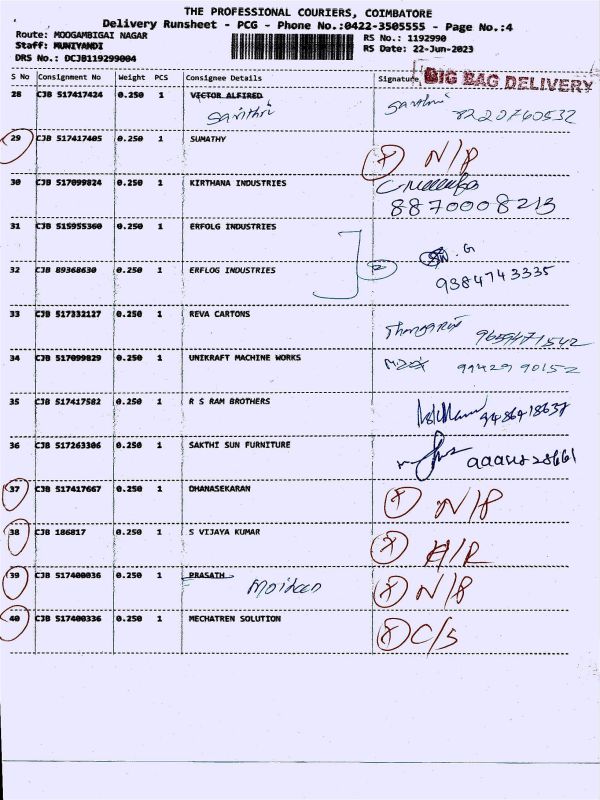 THE PROFESSIONAL COURIERS, COIMBATORE
Delivery Runsheet - PCG - Phone No.:0422-3505555 - Page No.:4
Route: MOOGAMBIGAI NAGAR RS No.: 1192990
Staff: MUNIYANDI RS Date: 22-Jun-2023
DRS No.: DCJB119299004
S No Consignment No Weight PCS Consignee Details Signature BIG BAG DELIVERY
28 CJB 517417424 0.250 1 VICTOR ALFIRED
Savithri Savithri 8220760532
29 CJB 517417405 0.250 1 SUMATHY
N/P
30 CJB 517099824 0.250 1 KIRTHANA INDUSTRIES
8870008213
31 CJB 515955360 0.250 1 ERFOLG INDUSTRIES
G
32 CJB 89368630 0.250 1 ERFLOG INDUSTRIES 2
9384743335
33 CJB 517332127 0.250 1 REVA CARTONS
9659471542
34 CJB 517099829 0.250 1 UNIKRAFT MACHINE WORKS
99429 90152
35 CJB 517417582 0.250 1 R S RAM BROTHERS
9486918637
36 CJB 517263306 0.250 1 SAKTHI SUN FURNITURE
37 CJB 517417667 0.250 1 DHANASEKARAN
N/P
38 CJB 186817 0.250 1 S VIJAYA KUMAR
39 CJB 517400036 0.250 1 PRASATH
Moideen N/P
40 CJB 517400336 0.250 1 MECHATREN SOLUTION
C/S